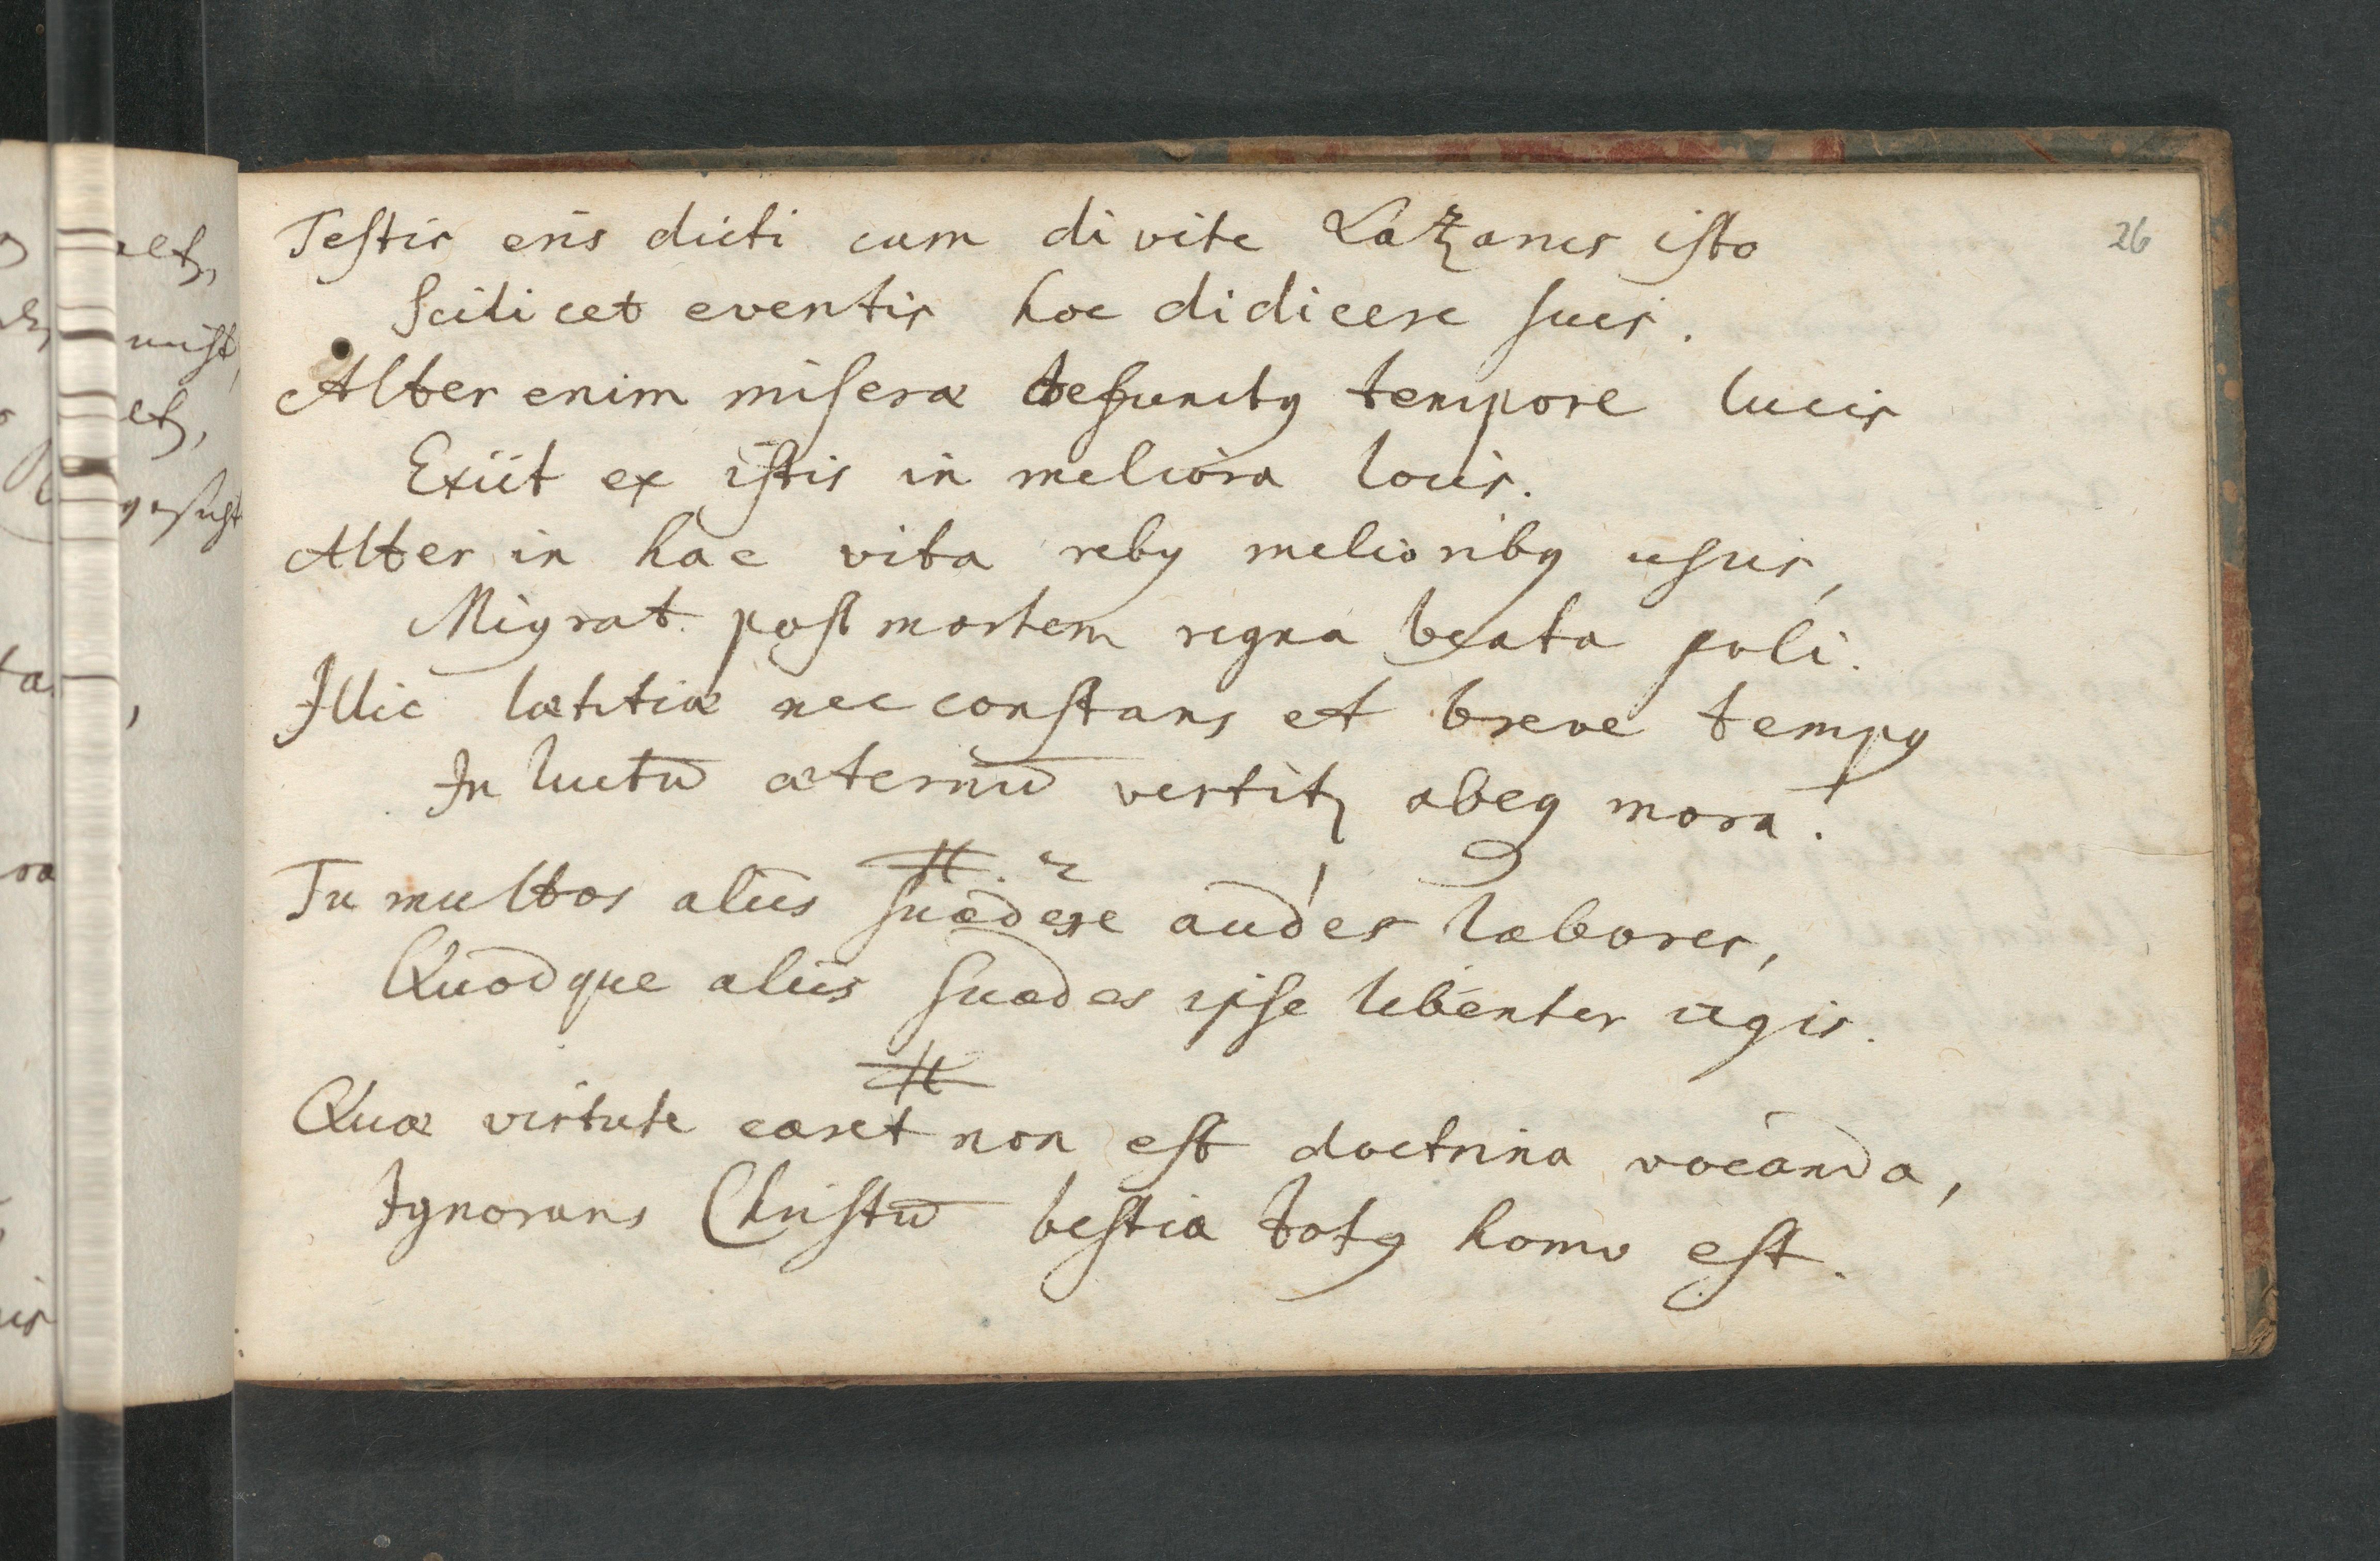 26
Testis eris dicti cum divite Lazarus isto
Scilicet eventis hoc didicere suis.
Alter enim miseræ defunctꝰ tempore lucis
Exiit ex istis in meliora locis.
Alter in hac vita rebꝰ melioribꝰ usus,
Migrat post mortem regna beata poli.
Illic lætitiæ nec constans et breve tempꝰ
In luctū æternū vertitꝛ absqꝫ mora.
Tu multos aliis suadere audes labores,
Quodque aliis suades ipse libenter agis.
Quæ virtute caret non est doctrina vocanda,
Ignorans Christū bestia totꝰ homo est.